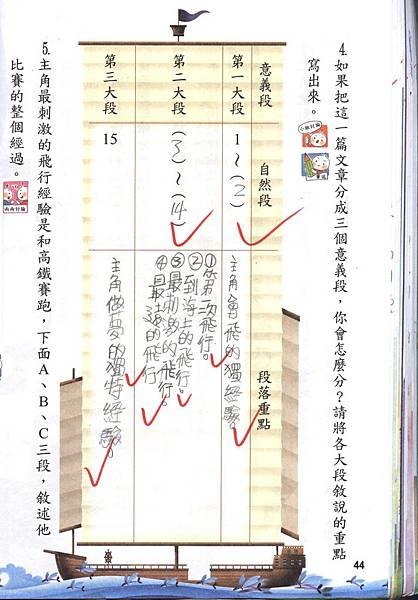 4.如果把這一篇文章分成三個意義段，你會怎麼分？請將各大段敘說的重點
寫出來。
意義段
自然段
段落重點
第一大段
1～(2)
主角會飛的獨特經驗
第二大段
(3)～(14)
①第一次飛行。
②到海上的飛行
③最刺激的飛行。
④最遠的飛行
第三大段
15
主角做夢的獨特經驗
5.主角最刺激的飛行經驗是和高鐵賽跑，下面A、B、C三段，敘述他
比賽的整個經過。
兩兩討論
44